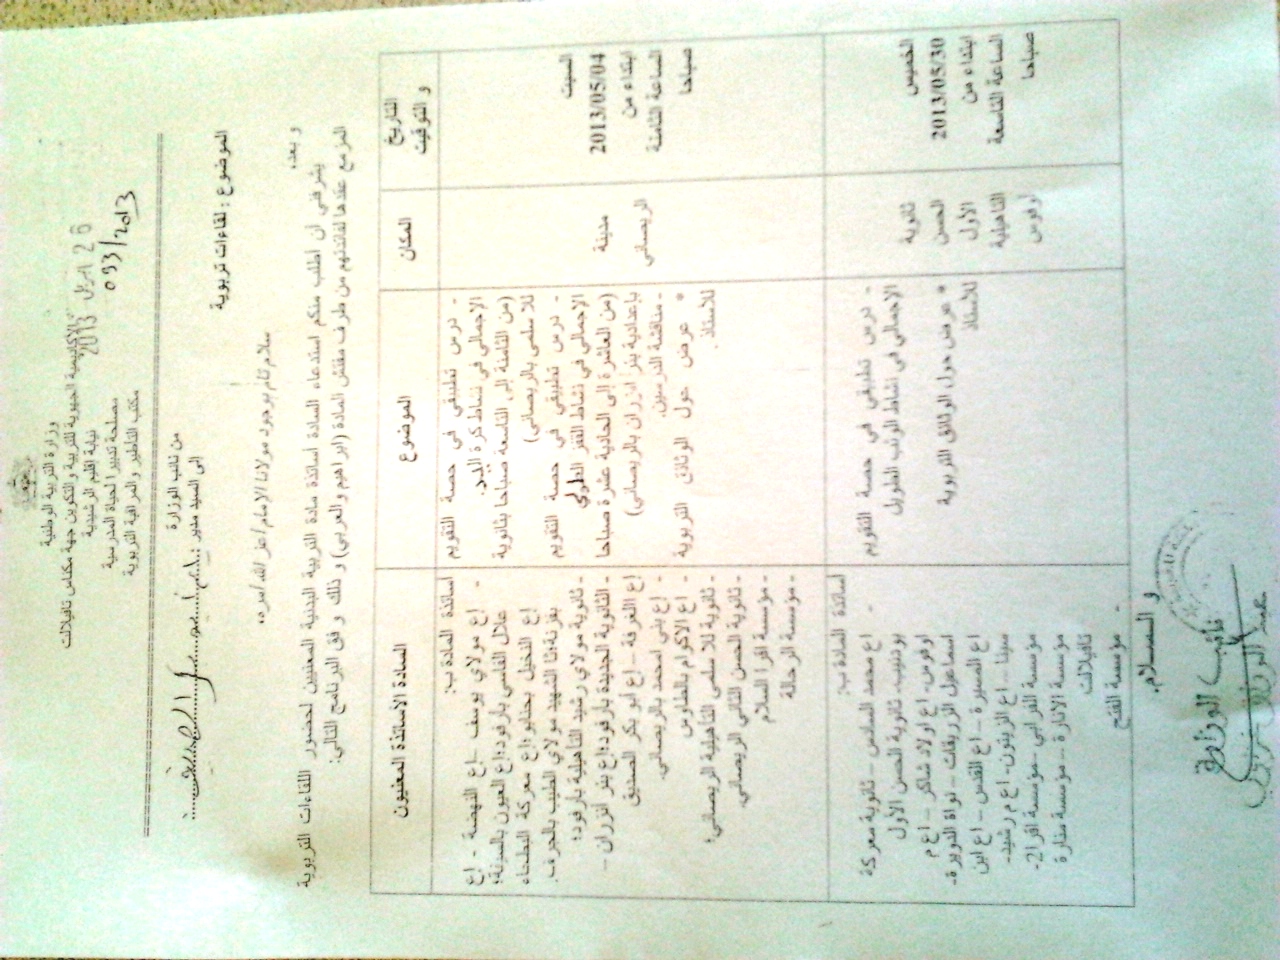 وزارة التربية الوطنية
الأكاديمية الجهوية للتربية والتكوين جهة مكناس تافيلالت
نيابة اقليم الرشيدية
مصلحة تدبير الحياة المدرسية
مكتب التأطير والمراقبة التربوية
26 ابريل 2013
093/2013
من نائب الوزارة
إلى السيد مدير
الموضوع : لقاءات تربوية
سلام تام بوجود مولانا الإمام أعز الله أمره
وبعد،
يشرفني أن أطلب منكم استدعاء السادة أساتذة مادة التربية البدنية المعنيين لحضور اللقاءات التربوية
المزمع عقدها لفائدتهم من طرف مفتش المادة (ابراهيم والعربي) و ذلك وفق البرنامج التالي:
السادة الاساتذة المعنيون
الموضوع
المكان
التاريخ
و التوقيت
أساتذة المادة ب:
- إع مولاي يوسف - إع النهضة - إع
علال الفاسي بأرفود؛إع العيون بالسدنة؛
إع النخيل بحنابو؛إع معركة البطحاء
بفزنة؛ثا الشهيد مولاي الطيب بالجرف.
- ثانوية مولاي رشيد التأهيلية بأرفود؛
- الثانوية الجديدة بأرفود؛إع بئر أنزران -
إع الغرفة - إع أبو بكر الصديق
- إع بني امحمد بالريصاني.
- إع الاكرام بالطاوس
- ثانوية للا سلمى التأهيلية الريصاني؛
- ثانوية الحسن الثاني الريصاني.
- مؤسسة اقرا السلام
- مؤسسة الرحالة
- درس تطبيقي في حصة التقويم
الإجمالي في نشاط كرة اليد.
(من الثامنة إلى التاسعة صباحا بثانوية
للا سلمى بالريصاني)
- درس تطبيقي في حصة التقويم
الإجمالي في نشاط القفز الطولي
(من العاشرة إلى الحادية عشرة صباحا
بإعدادية بئر انزران بالريصاني)
- مناقشة الدرسين.
* عرض حول الوثائق التربوية
للأستاذ.
مدينة
الريصاني
السبت
2013/05/04
ابتداء من
الساعة الثامنة
صباحا
أساتذة المادة ب:
- إع محمد السادس - ثانوية معركة
بودنيب. ثانوية الحسن الأول
اوفوس- إع اولاد شاكر - إع م
اسماعيل الزريقات - نواة الدويرة-
إع المسيرة - إع القدس - إع ابن
سينا - إع الزيتون- إع م رشيد-
مؤسسة الفرابي -مؤسسة اقرا2-
مؤسسة الانارة - مؤسسة منارة
تافيلالت
- مؤسسة الفتح
- درس تطبيقي في حصة التقويم
الإجمالي في نشاط الوثب الطويل
* عرض حول الوثائق التربوية
للأستاذ
ثانوية
الحسن
الأول
التأهيلية
أوفوس
الخميس
2013/05/30
ابتداء من
الساعة التاسعة
صباحا
و السلام.
نائب الوزارة